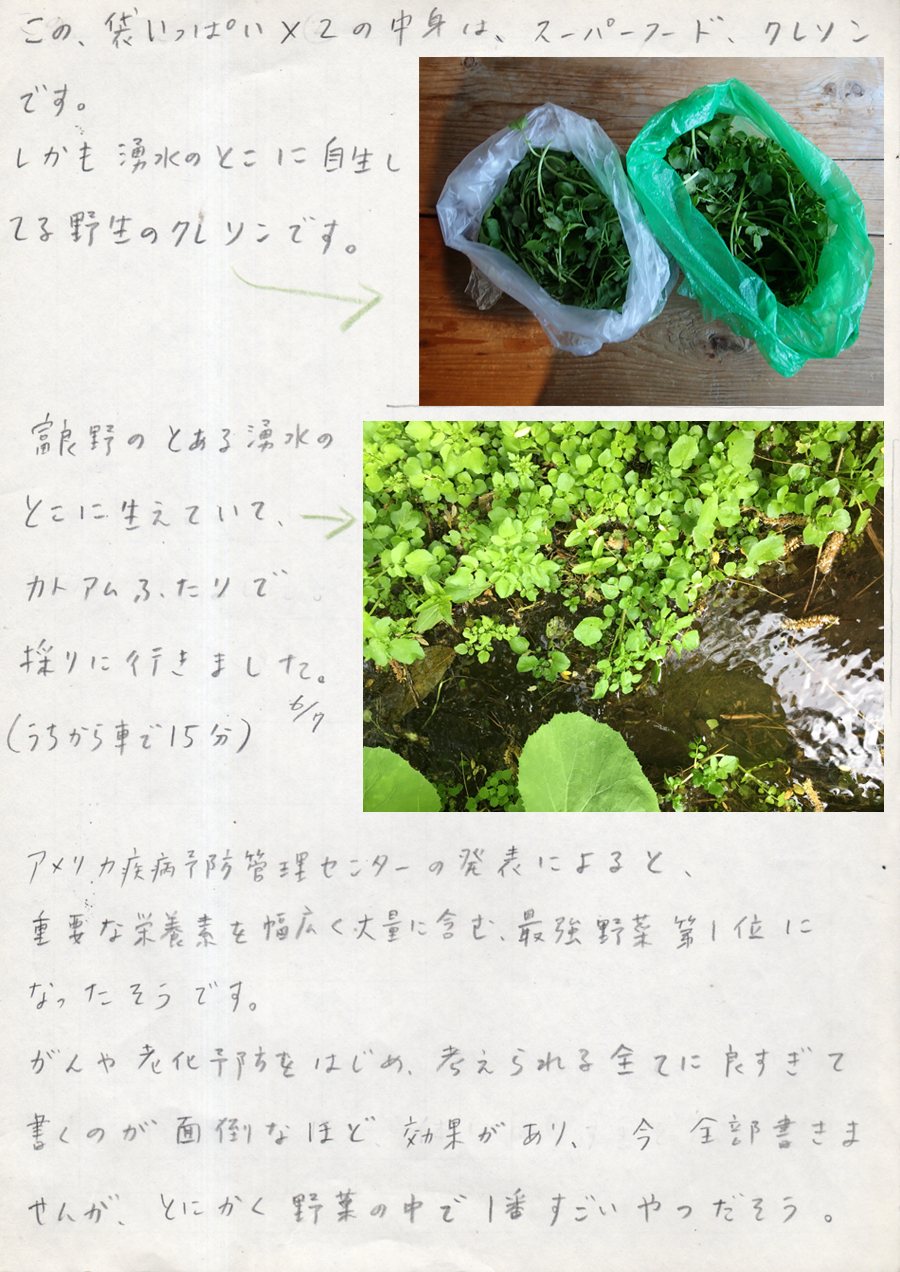 この、袋いっぱい×2の中身は、スーパーフード、クレソン
です。
しかも湧水のとこに自生し
てる野生のクレソンです。
富良野のとある湧水の
とこに生えていて、
カトアムふたりで
採りに行きました。
6/7
(うちから車で15分)
アメリカ疾病予防管理センターの発表によると、
重要な栄養素を幅広く大量に含む、最強野菜第1位に
なったそうです。
がんや老化予防をはじめ、考えられる全てに良すぎて
書くのが面倒なほど効果があり、今全部書きま
せんが、とにかく野菜の中で1番すごいやつだそう。